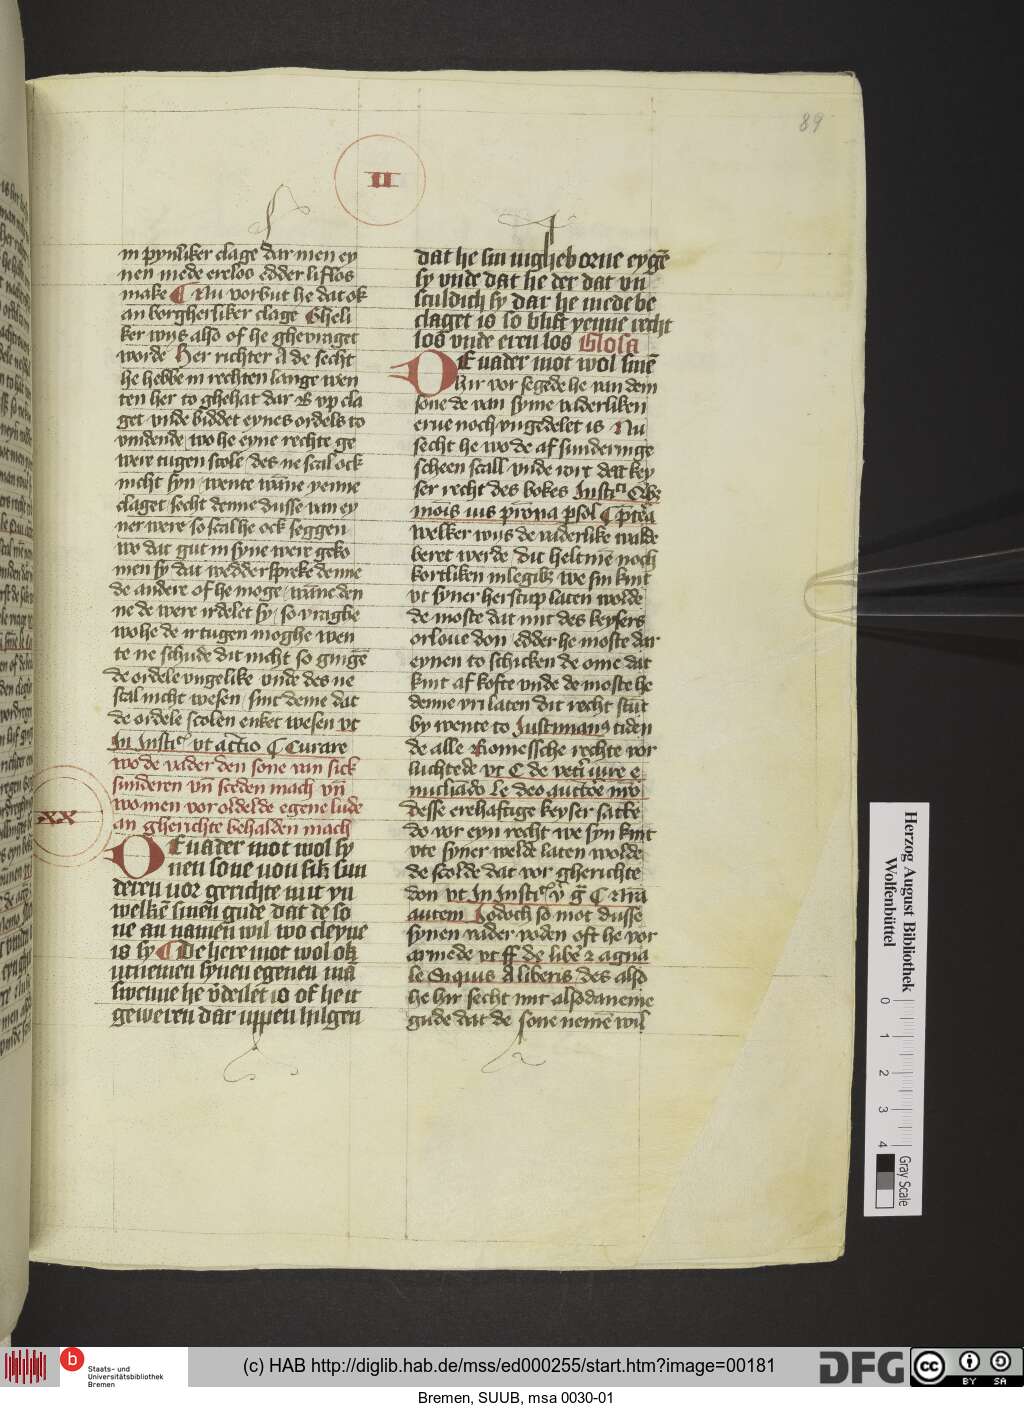 89
II
in pynliker clage dar men ey
nen mede erelos edder liflos
make ¶ Nu vorbut he dat ok
an borgherliker clage Gheli
ker wys also of he ghevraget
worde Her richter A de secht
he hebbe in rechten lange wen
ten her to ghehat dar B vp cla
get vnde biddet eynes ordels to
vindende wo he eyne rechte ge
were tugen scole des ne scal ock
nicht syn wente wāne yenne
claget secht denne dusse van ey
ner were so scal he ock seggen
wo dat gut in syne were geko
men sy dat wedderspreke denne
de andere of he moge wāne den
ne de were irdelet sy so vraghe
wo he de irtugen moghe wen
te ne schude dit nicht so gingē
de ordele vngelike vnde des ne
scal nicht wesen sint deme dat
de ordele scolen enket wesen vt
In Insti vt actio ¶ Curare
wo de vader den sone van sick
sunderen vn̄ sceden mach vn̄
wo men vor oldelde egene lude
an gherichte behalden mach
XX
DE vader mot wol sy
nen sone von sik sun
deren vor gerichte mit yn
welkē sinen gude dat de so
ne an namen wil wo cleyne
is sy ¶ De here mot wol ok
utnemen synen egenen mā
swenne he v̄deilet is of he it
geweren dar uppen hilgen
dat he sin ingheborne eygē
sy vnde dat he der dat vn
sculdich sy dar he mede be
claget is so blift yenne recht
los vnde eren los Glosa
DE vader mot wol sinē
Hir vor segede he van dem
sone de van syme vaderliken
erue noch vngedelet is Nu
secht he wo de afsunderinge
scheen scall vnde wrt dat key
ser recht des bokes Insti
welker wys de vaderlike walde
beret werde dit helt mē noch
kortliken we sin kint
vt syner herscup laten wolde
de moste dat mit des keysers
orloue don edder he moste dar
eynen to schicken de ome dat
kint af kofte vnde de moste he
denne vri laten dit recht stūt
by wente to Justinianus tiden
de alle Romessche rechte vor
luchtede vt C de
desse erehaftige keyser satte
do vor eyn recht we syn kint
vte syner welde laten wolde
de scolde dat vor gherichte
don vt In Insti
autem Jodoch so mot dusse
synen vader voden oft he vor
armede vt ff de libe agna
le Siquis A liberis des also
he hir secht mit alsodaneme
gude dat de sone nemē wil
Herzog August Bibliothek
Wolfenbüttel
0 1 2 3 4
Gray Scale
b Staats- und
Universitätsbibliothek
Bremen
(c) HAB http://diglib.hab.de/mss/ed000255/start.htm?image=00181
DFG
cc BY SA
Bremen, SUUB, msa 0030-01